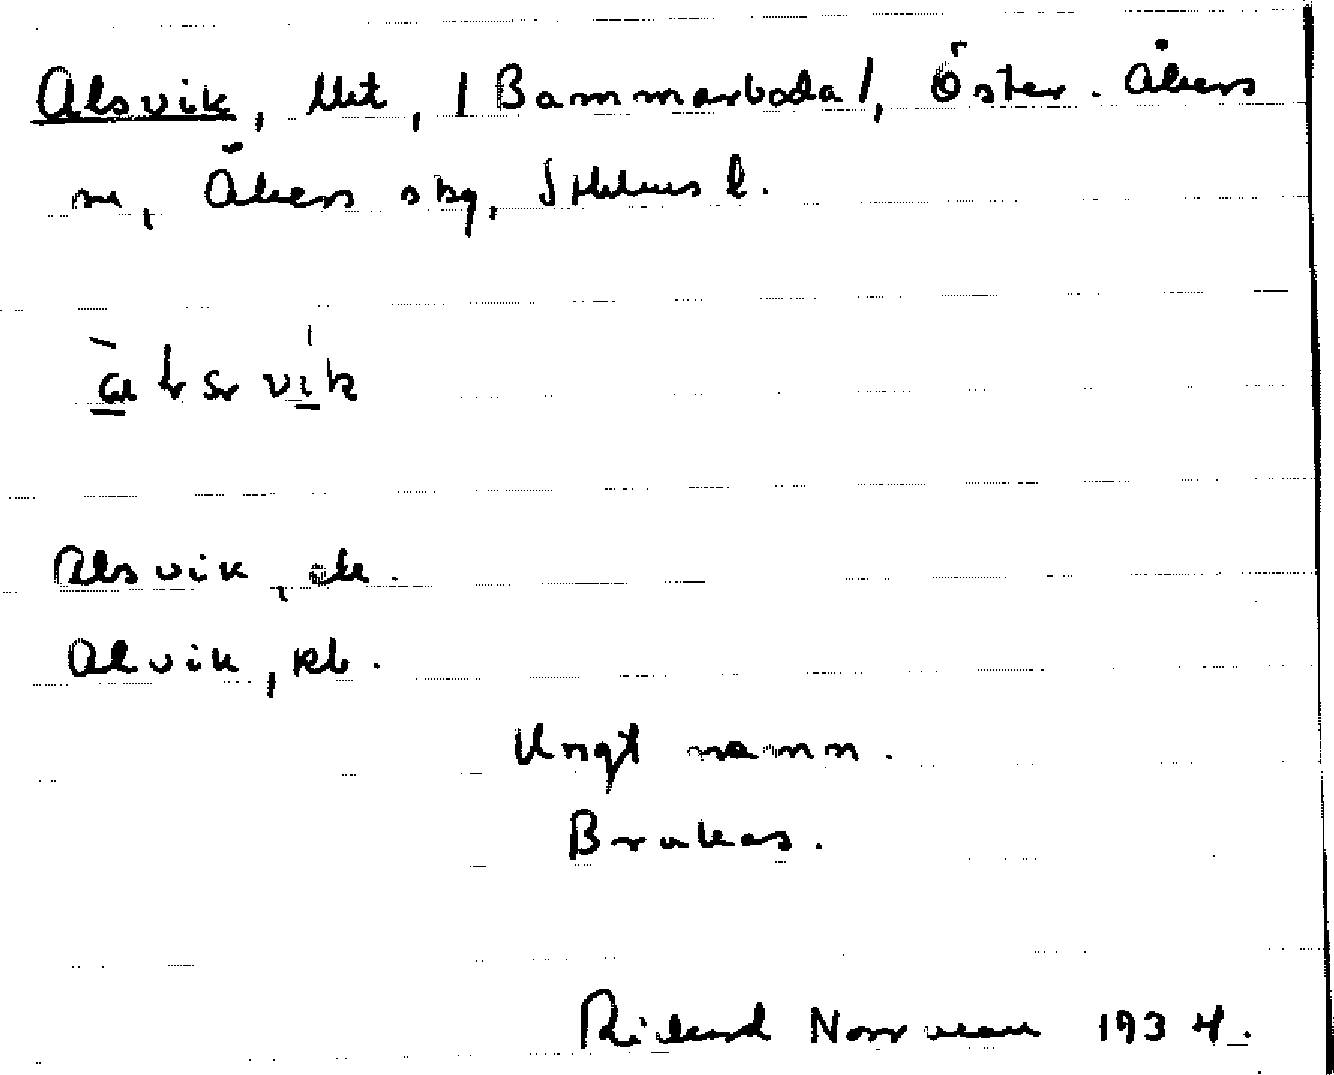 Alsvik, lht, /Bammarboda/, Öster-Åkers
sn, Åkers skg, Sthlms l.
Alsvik, ek.
Alvik, kb.
Ungt namn.
Brukas.
Rickard Norrman 1934.